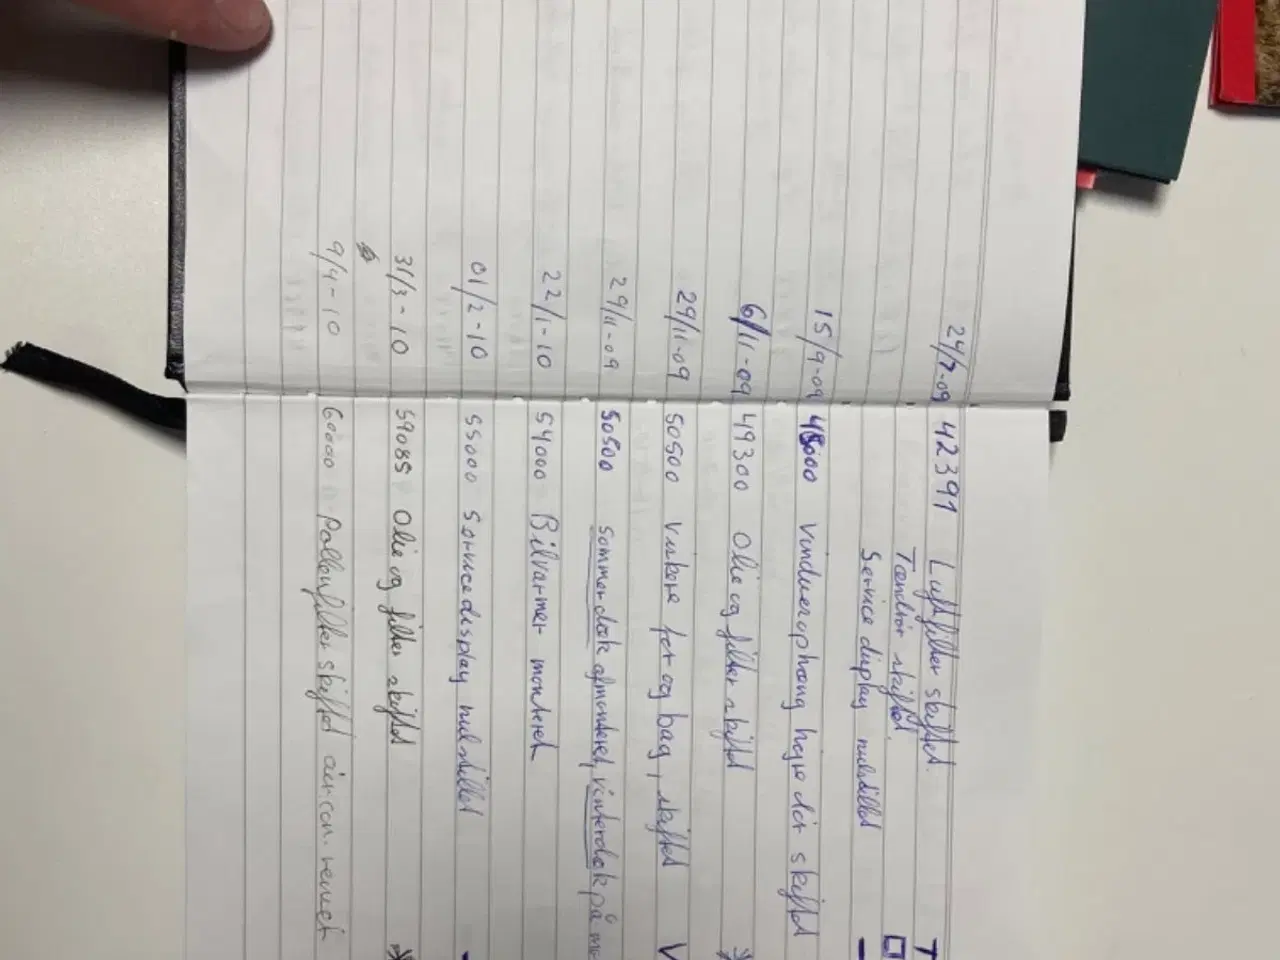 24/7-09 42391 Luftfilter skiftet.
Tændrör skiftet.
Service display nulstillet
15/9-09 48000 vinduesophæng højre dör skiftet
6/11-09 49300 Olie og filter skiftet
29/11-09 50500 viskere for og bag, skiftet V
29/11-09 50500 sommerdæk afmonteret, vinterdæk på
22/1-10 54000 Bilvarmer monteret
01/2-10 55000 Servicedisplay nulstillet
31/3-10 59085 Olie og filter skiftet
9/4-10 60000 Pollenfilter skiftet aircon. renset